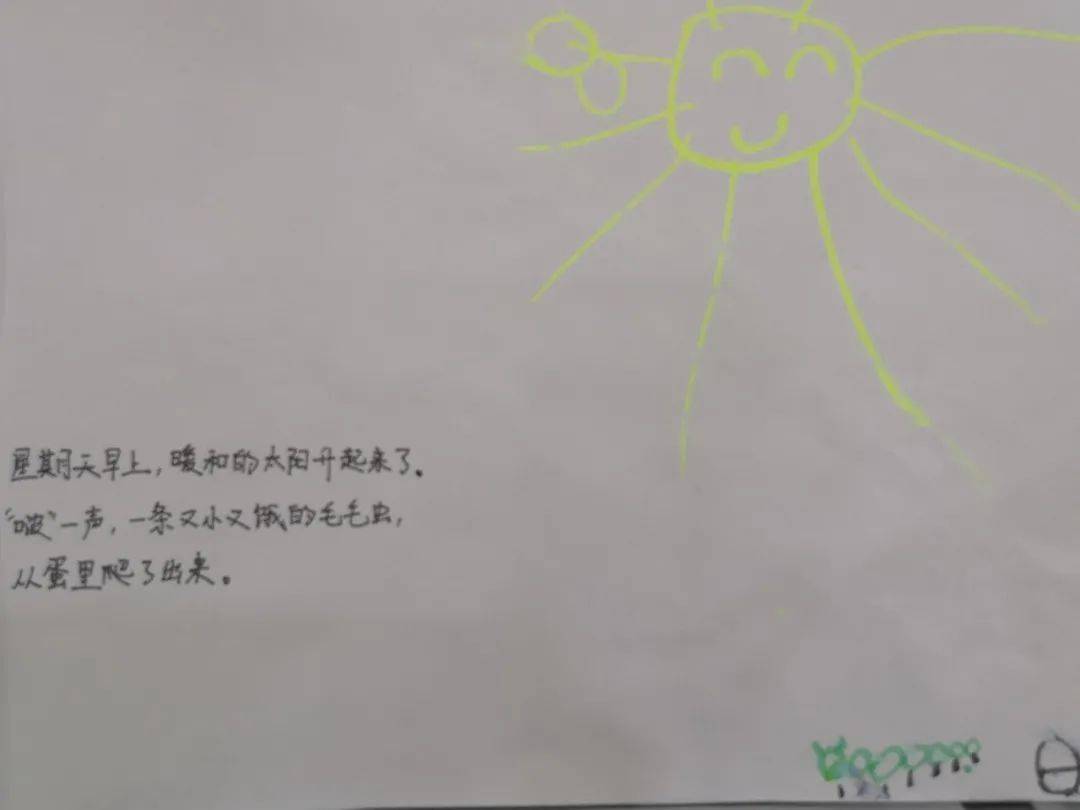 星期天早上，暖和的太阳升起来了。
“啵”一声，一条又小又饿的毛毛虫，
从蛋里爬了出来。